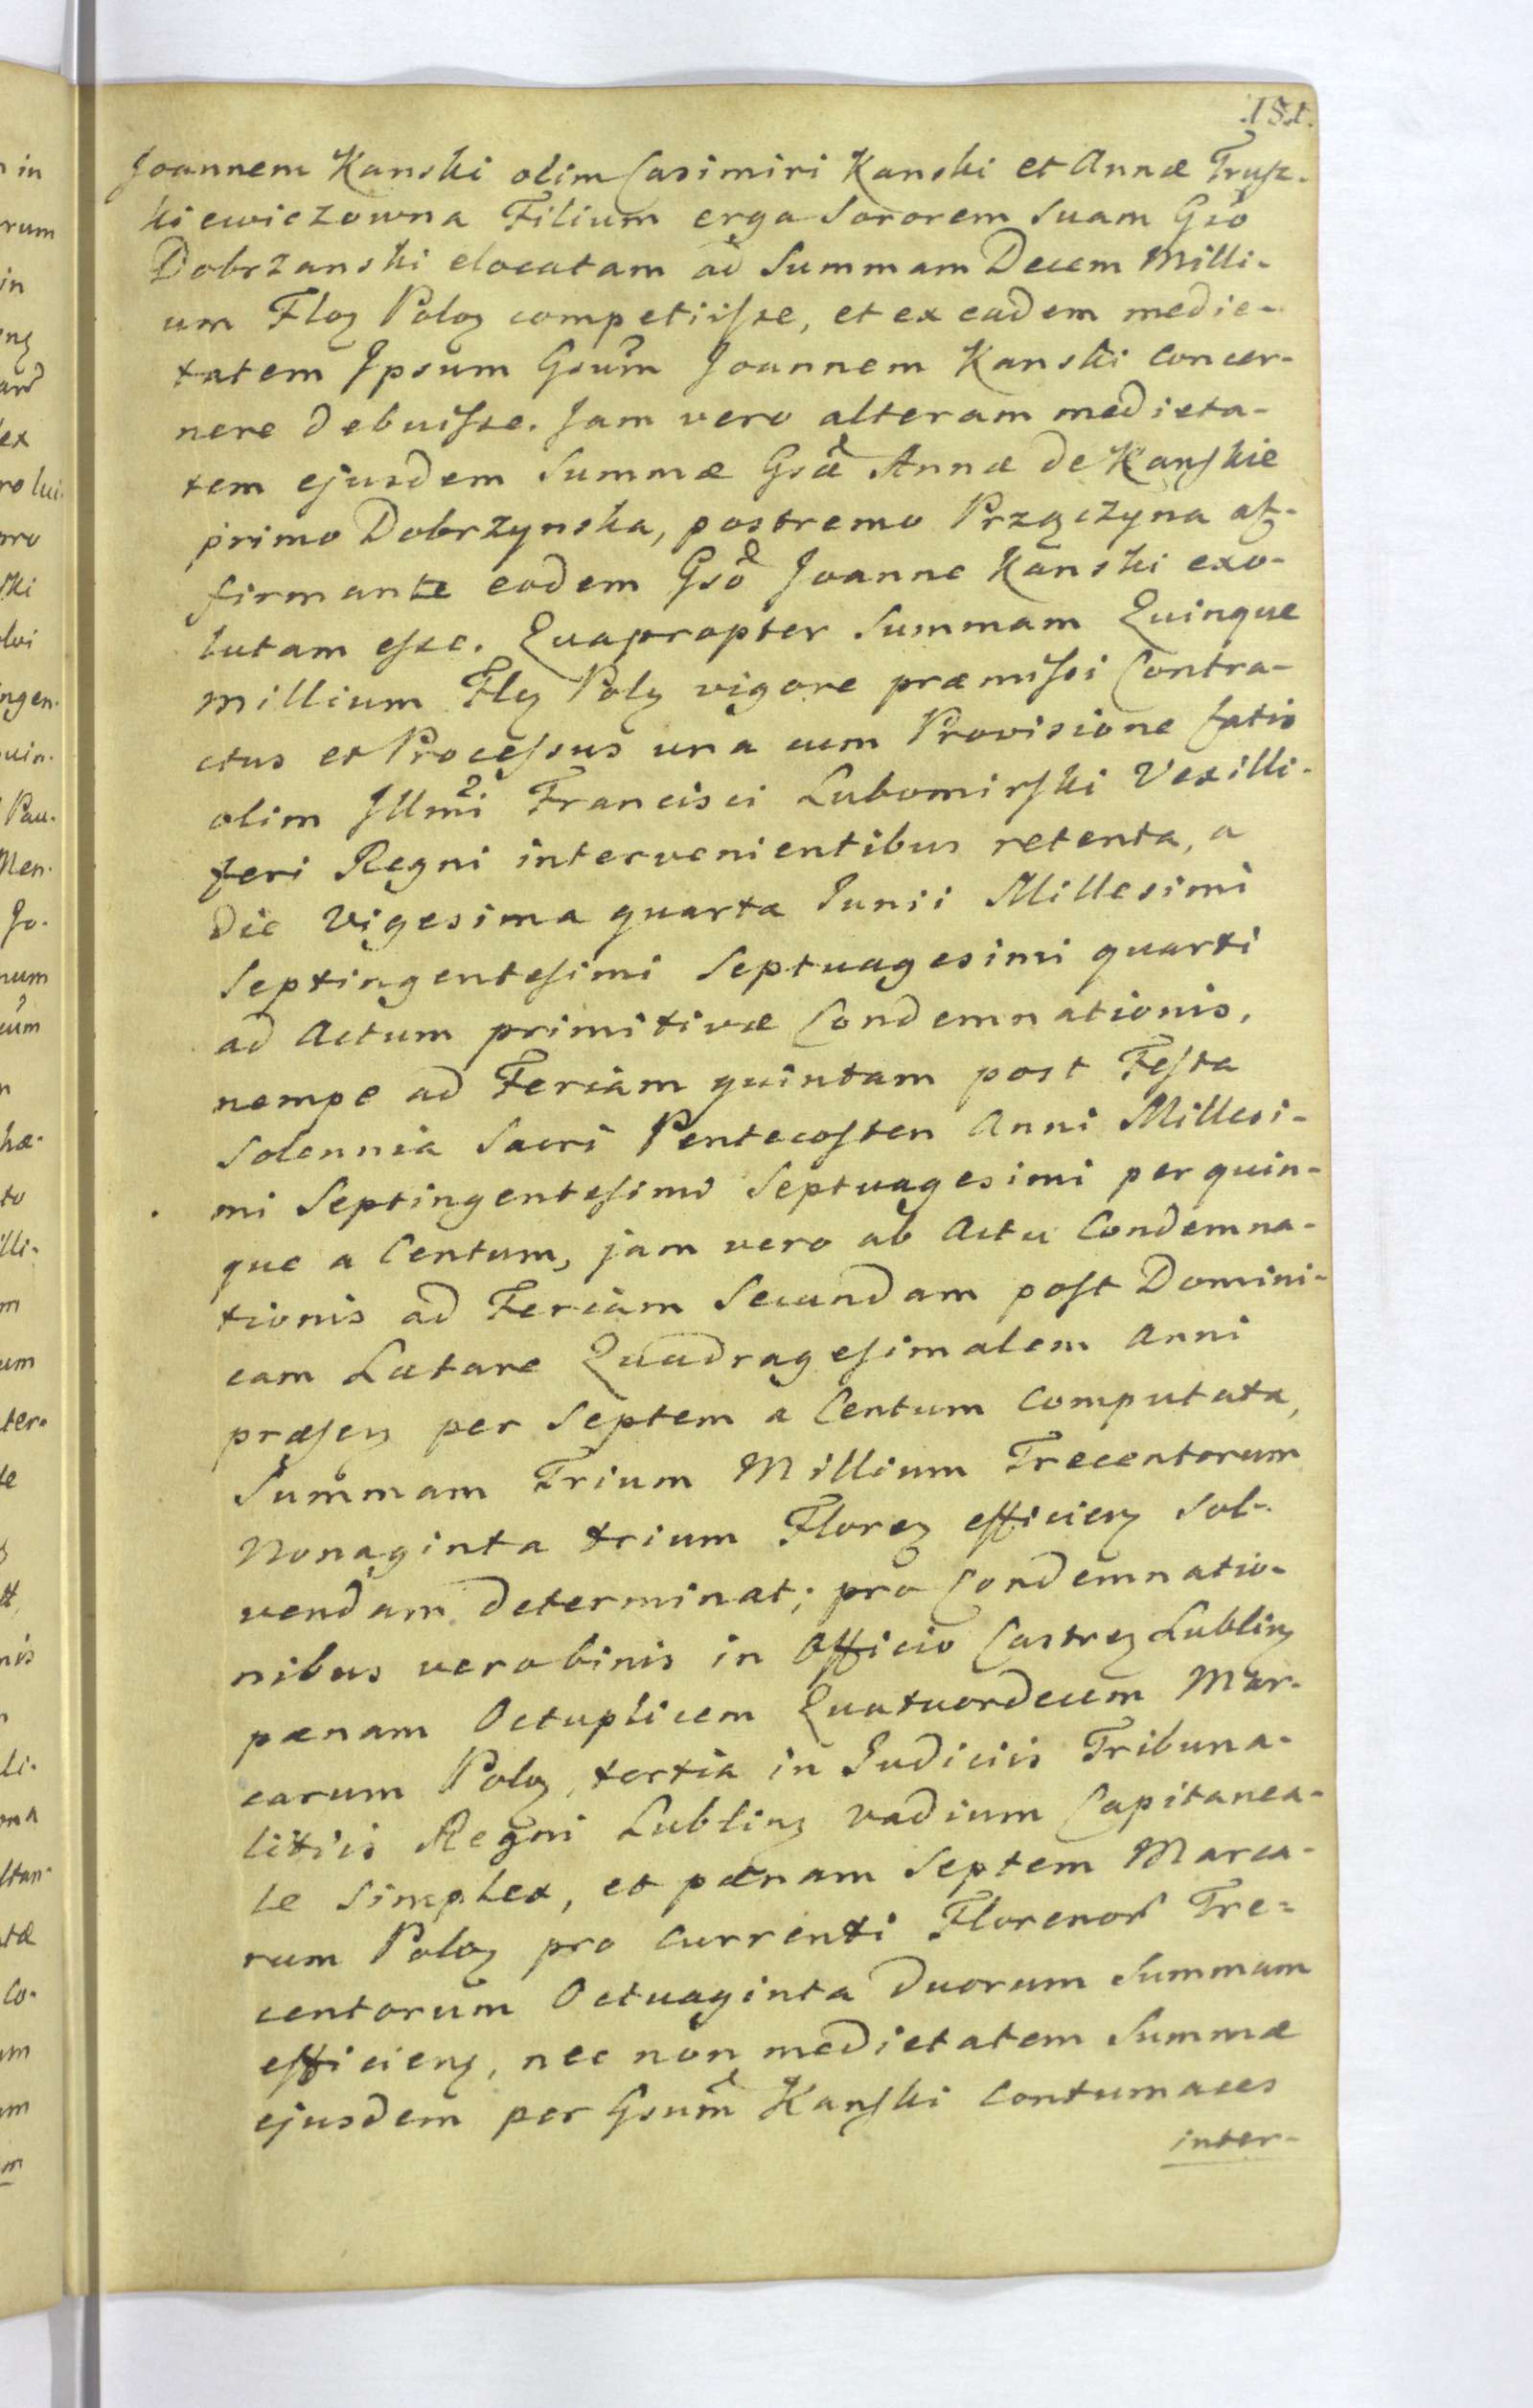 151.
Joannem Kanski olim Casimiri Kanski et Annæ Trusz-
kiewiczowna Filium erga Sororem Suam Gsô
Dobrzanski elocatam ad Summam Decem Milli-
um Floz Poloz competiisse, et ex eadem medie-
tatem Ipsum Gsum Joannem Kanski concer-
nere debuisse. Jam vero alteram medieta-
tem ejusdem Summæ Gsâ Annæ de Kanskie
primo Dobrzynska, postremo af-
firmante eodem Gsô Joanne Kanski exo-
lutam esse. Quapropter Summam Quinque
millium Flz Polz vigore præmissi Contra-
ctus et Processus una cum Provisione fatis
olim Illmi Francisci Lubomirski Vexilli-
feri Regni intervenientibus retenta, a
die Vigesima quarta Junii Millesimi
Septingentesimi Septuagesimi quarti
ad Actum primitivæ Condemnationis,
nempe ad Feriam quintam post Festa
Solennia Sacri Pentecosten Anni Millesi-
mi Septingentesimi Septuagesimi per quin-
que a Centum, jam vero ab Actu Condemna-
tionis ad Feriam Secundam post Domini-
cam Lætare Quadragesimalem Anni
præsenz per Septem a Centum computata,
Summam Trium Millium Trecentorum
Nonaginta trium Florez efficienz Sol-
vendam determinat; pro Condemnatio-
nibus vero binis in Officio Castrez Lublinz
pænam Octuplicem Quatuordecem Mar-
carum Poloz, tertia in Judiciis Tribuna-
litiis Regni Lublinz vadium Capitanea-
le Simplex, et pænam Septem Marca-
rum Poloz pro currenti Florenor Tre-
centorum Octuaginta Duorum Summam
efficienz, nec non medietatem Summæ
ejusdem per Gsum Kanski Contumaces
inter-